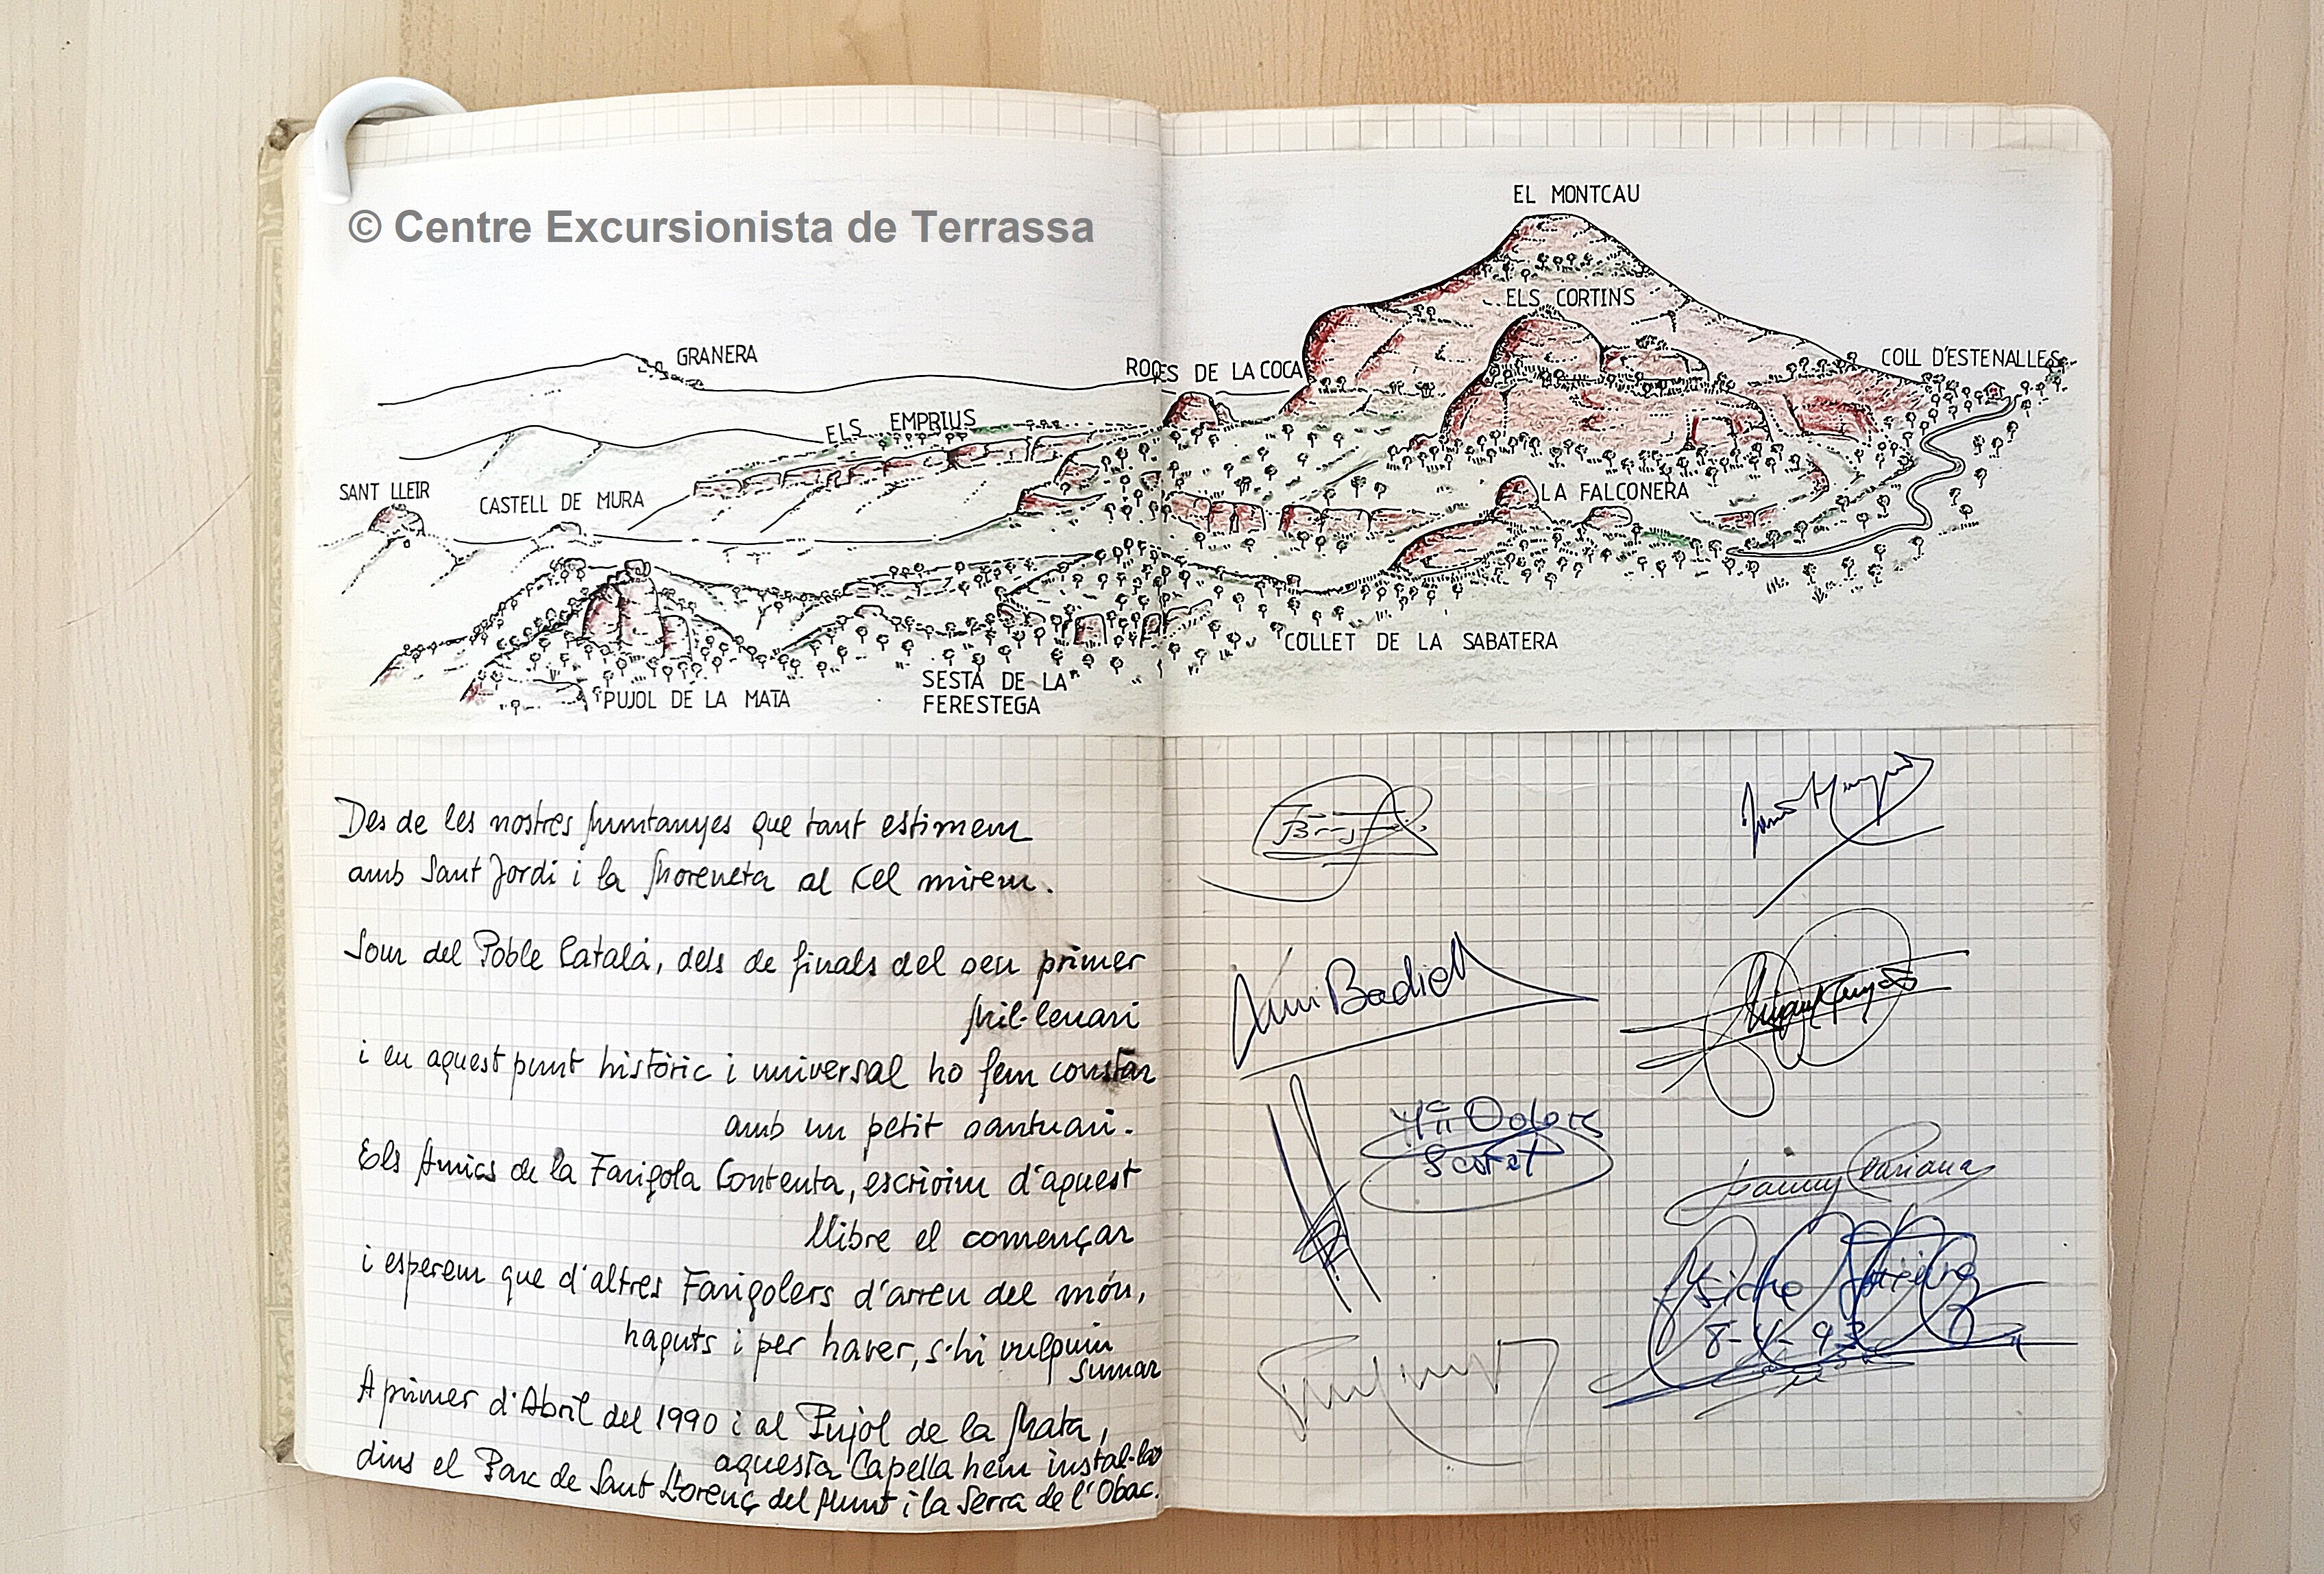 © Centre Excursionista de Terrassa
EL MONTCAU
ELS CORTINS
GRANERA
ROQES DE LA COCA
COLL D'ESTENALLES
ELS EMPRIUS
SANT LLEIR
CASTELL DE MURA
LA FALCONERA
COLLET DE LA SABATERA
SESTA DE LA
FERESTEGA
PUJOL DE LA MATA
Des de les nostres Muntanyes que tant estimem
amb Sant Jordi i la Moreneta al Cel mirem.
Som del Poble Català, dels de finals del seu primer
Mil·lenari
i en aquest punt històric i universal ho fem constar
amb un petit santuari.
Els Amics de la Farigola Contenta, escrivim d'aquest
llibre el començar
i esperem que d'altres Farigolers d'arreu del món,
haguts i per haver, s'hi vulguin
sumar
A primer d'Abril del 1990 i al Pujol de la Mata,
aquesta Capella hem instal·lat
dins el Parc de Sant Llorenç del Munt i la Serra de l'Obac.
Badiell
Mª Dolors